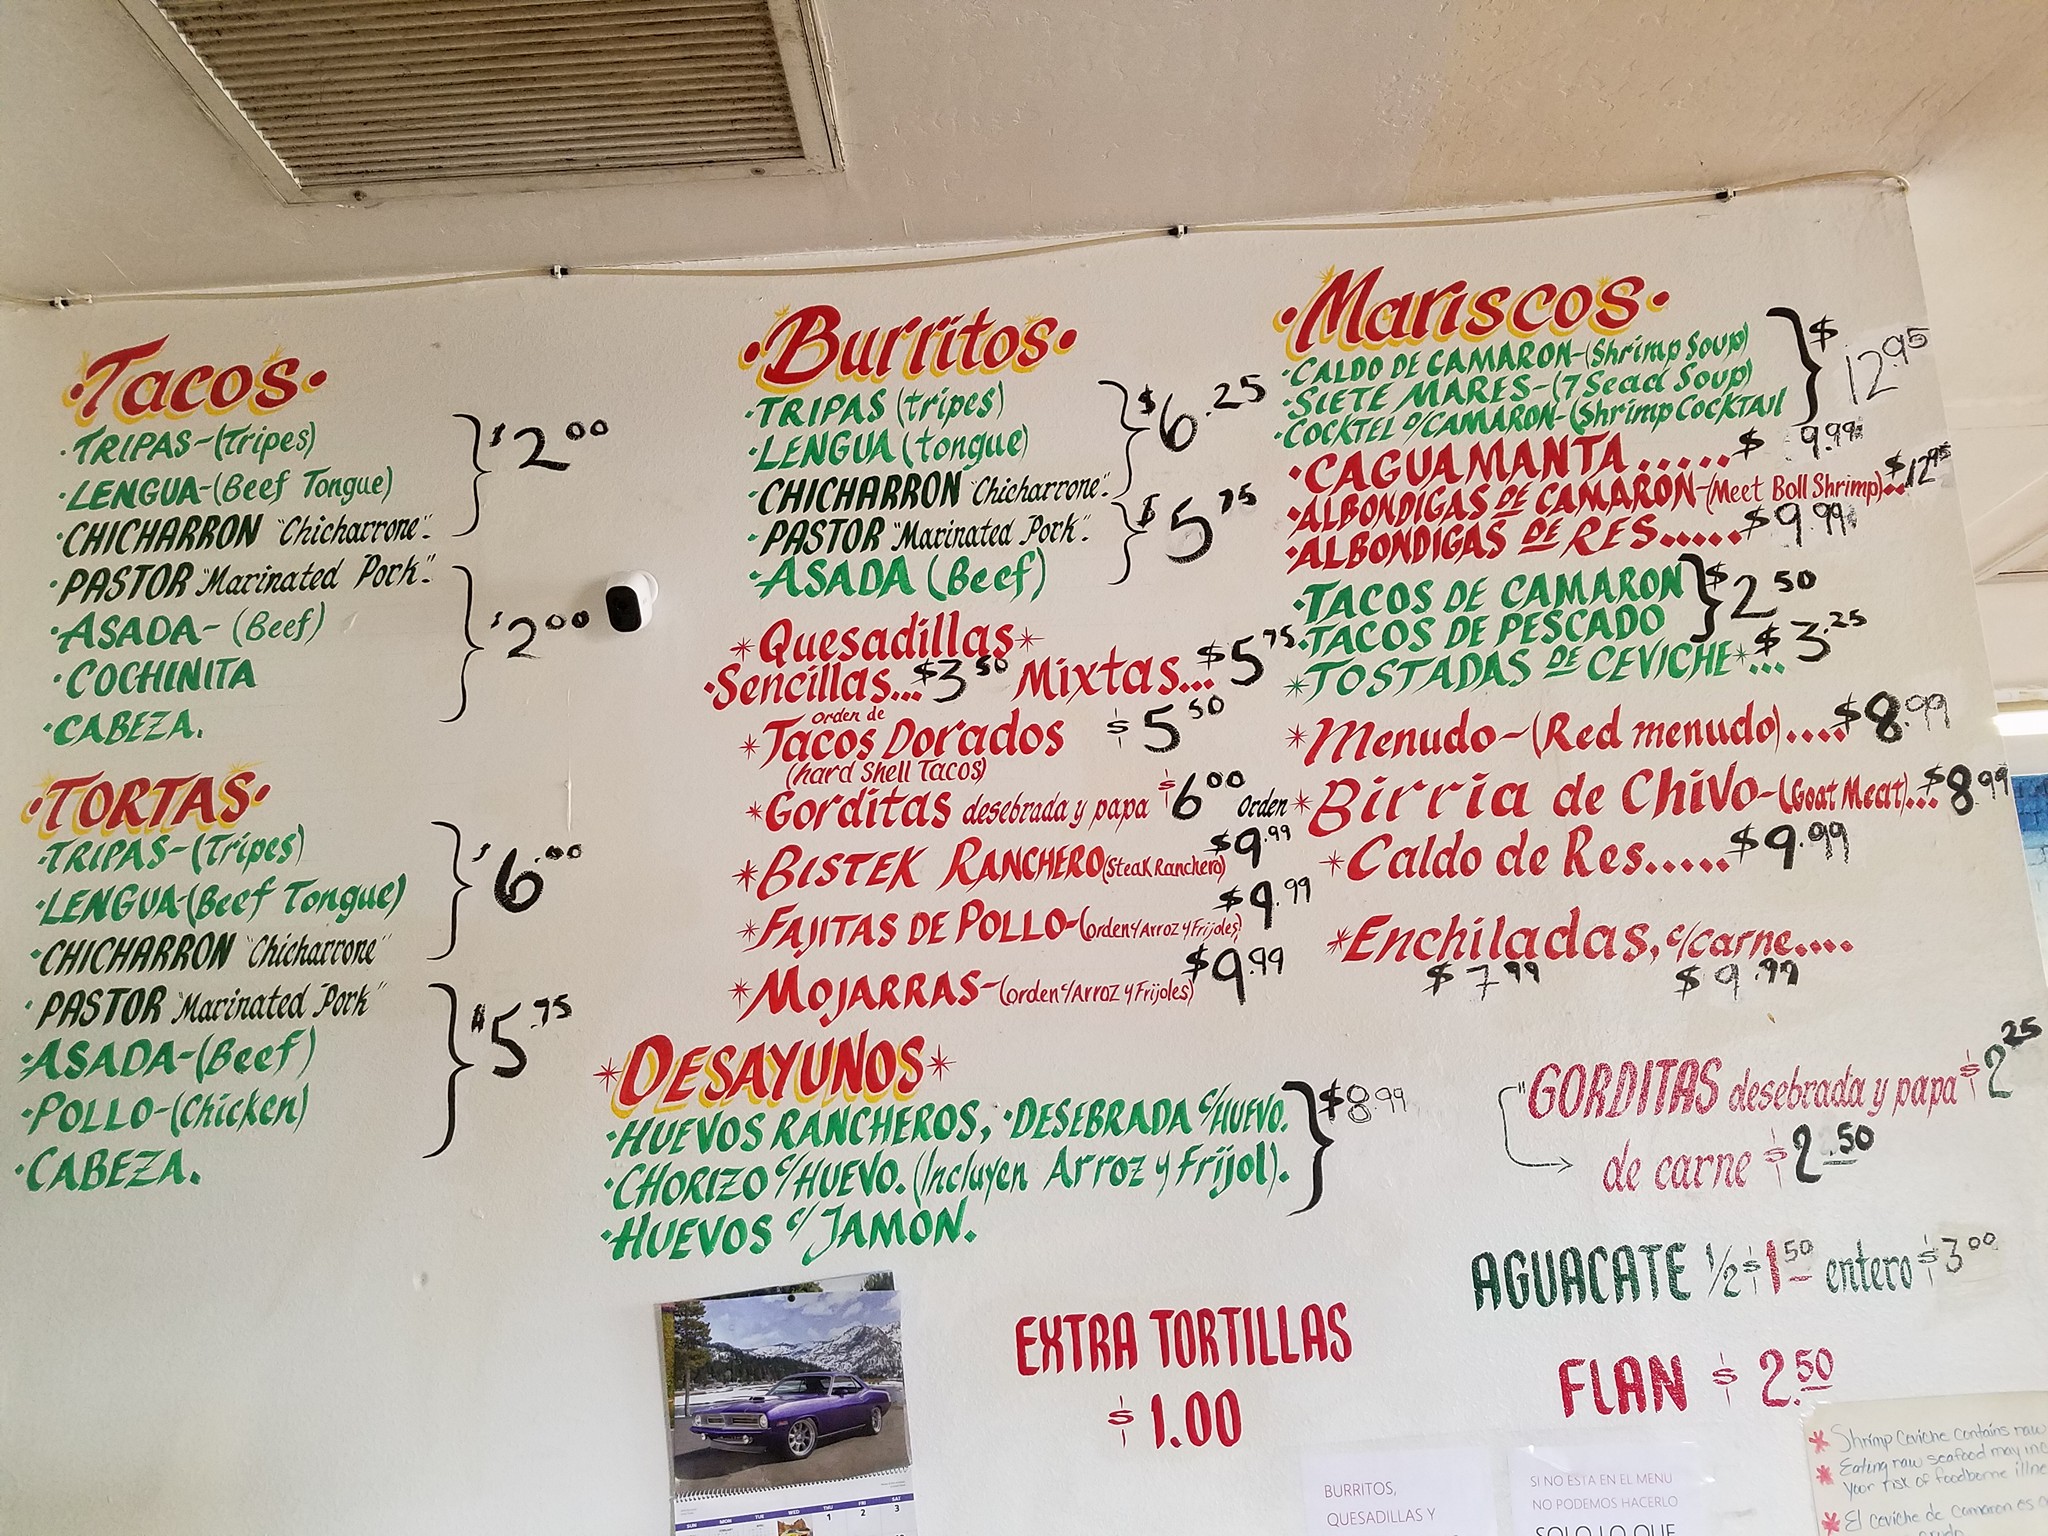 • Tacos •
• TRIPAS-(Tripes)
• LENGUA-(Beef Tongue)
$2.00
• CHICHARRON "Chicharrone".
• PASTOR "Marinated Pork".
• ASADA- (Beef)
$2.00
• COCHINITA
• CABEZA.
• TORTAS •
• TRIPAS-(Tripes)
• LENGUA-(Beef Tongue)
$6.00
• CHICHARRON "Chicharrone"
• PASTOR "Marinated Pork"
$5.75
• ASADA-(Beef)
• POLLO-(Chicken)
• CABEZA.
• Burritos •
• TRIPAS (tripes)
• LENGUA (tongue)
$6.25
• CHICHARRON "Chicharrone".
• PASTOR "Marinated Pork".
$5.75
• ASADA (Beef)
* Quesadillas *
• Sencillas...$3.50 Mixtas...$5.75
orden de
* Tacos Dorados $5.50
(hard Shell Tacos)
* Gorditas desebrada y papa $6.00 Orden
* BISTEK RANCHERO (Steak Ranchero) $9.99
* FAJITAS DE POLLO-(orden c/Arroz y Frijoles) $9.99
* MOJARRAS-(orden c/Arroz y Frijoles) $9.99
* DESAYUNOS *
• HUEVOS RANCHEROS, • DESEBRADA c/HUEVO.
$8.99
• CHORIZO c/HUEVO. (Incluyen Arroz y Frijol).
• HUEVOS c/JAMÓN.
• Mariscos •
• CALDO DE CAMARON-(Shrimp Soup)
• SIETE MARES-(7 Sead Soup)
$12.95
• COCKTEL D/CAMARON-(Shrimp COCKTAIL
• CAGUAMANTA ..... $9.99
• ALBONDIGAS DE CAMARON-(Meet Boll Shrimp).. $12.95
• ALBONDIGAS DE RES.....$9.99
• TACOS DE CAMARON
$2.50
• TACOS DE PESCADO
* TOSTADAS DE CEVICHE*... $3.25
* Menudo-(Red menudo)....$8.99
* Birria de Chivo-(Goat Meat)...$8.99
* Caldo de Res.....$9.99
* Enchiladas, c/carne....
$7.99 $9.99
"GORDITAS desebrada y papa $2.25
de carne $2.50
AGUACATE 1/2 $1.50 entero $3.00
EXTRA TORTILLAS
$1.00
FLAN $2.50
SUN MON TUE WED THU FRI SAT
1 2 3
BURRITOS,
QUESADILLAS Y
SI NO ESTA EN EL MENU
NO PODEMOS HACERLO
SOLO LO QUE
* Shrimp Ceviche contains raw
* Eating raw seafood may inc
your risk of foodborne illne
* El ceviche de camaron es
crudo